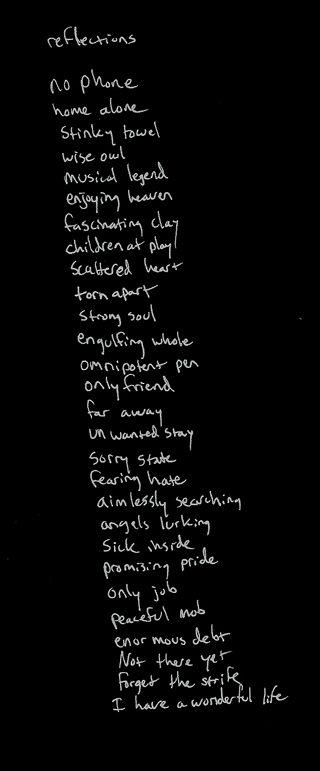 reflections
no phone
home alone
stinky towel
wise owl
musical legend
enjoying heaven
fascinating clay
children at play
scattered heart
torn apart
strong soul
engulfing whole
omnipotent pen
only friend
far away
unwanted stay
sorry state
fearing hate
aimlessly searching
angels lurking
sick inside
promising pride
only job
peaceful mob
enormous debt
Not there yet
forget the strife
I have a wonderful life